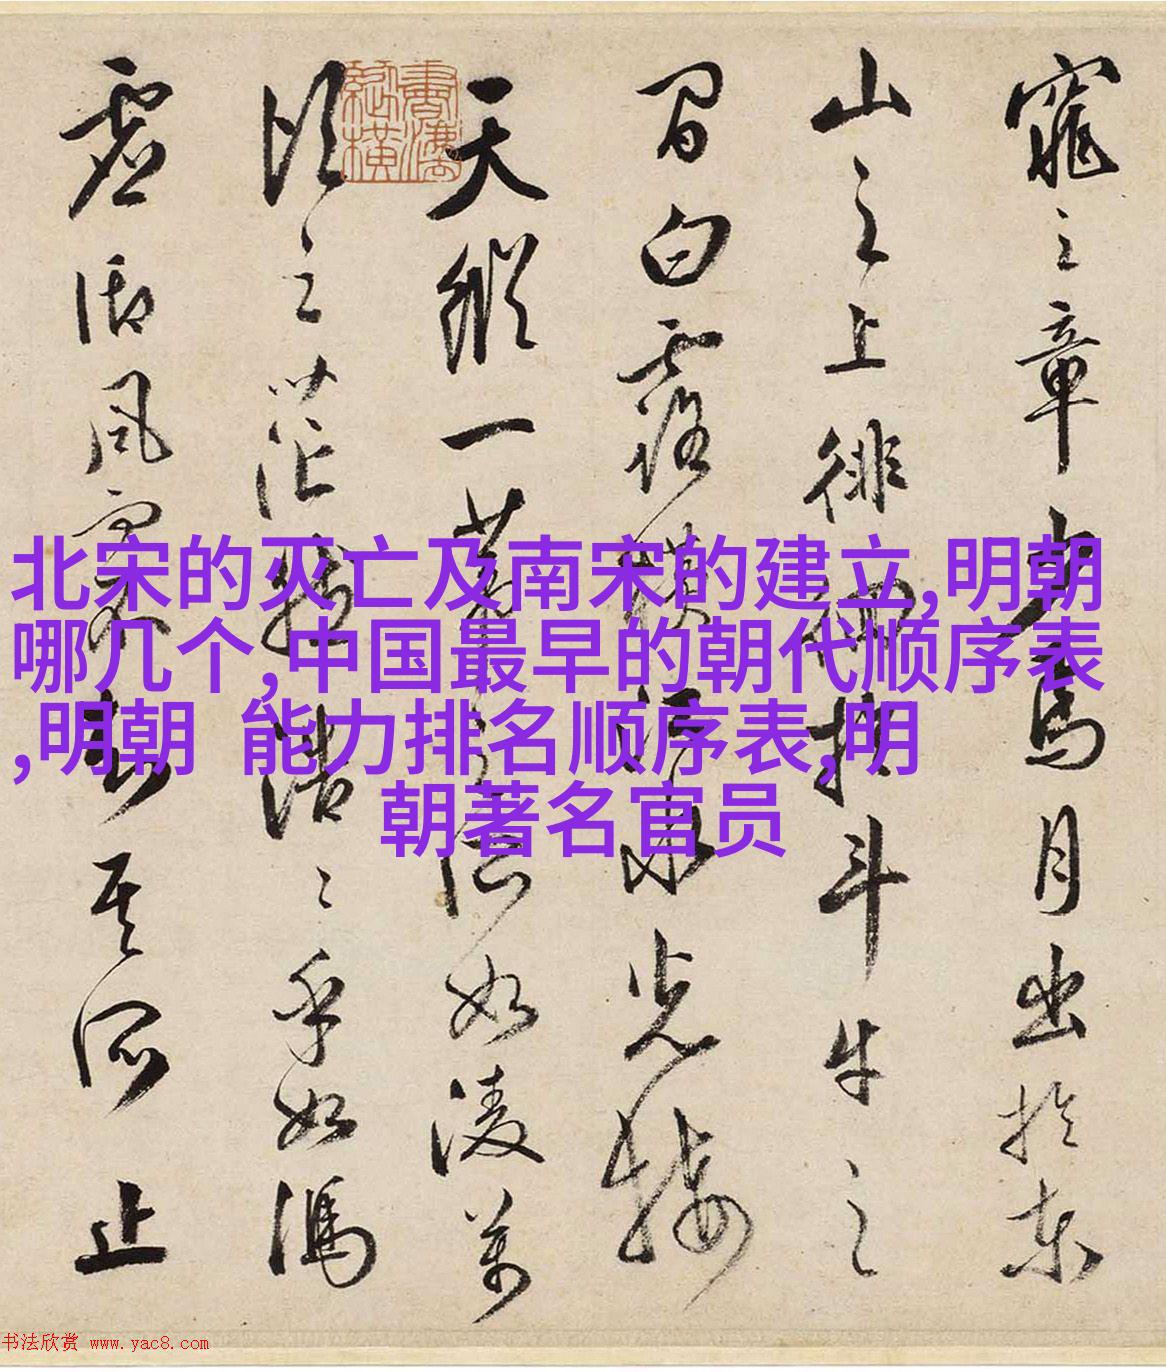 窕之章少焉月出於東
山之上徘徊於斗牛之
間白露橫江水光接
天縱一葦之所如陵萬
頃之茫然浩〻乎如馮
虛御風而不知其所止
北宋的灭亡及南宋的建立,明朝
哪几个,中国最早的朝代顺序表
,明朝 能力排名顺序表,明
朝著名官员
书法欣赏 www.yac8.com